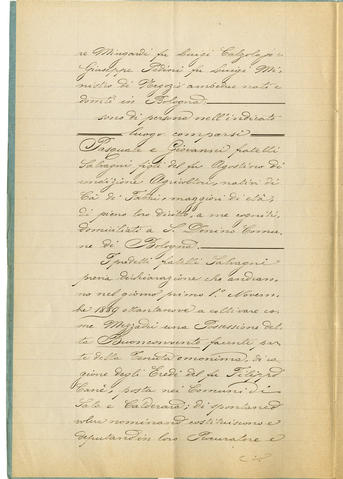 re Mingardi fu Luigi Calzolajo e
Giuseppe Pedini fu Luigi Mi-
nistro di Negozio ambedue nati e
domti in Bologna
sono di persona nell'indicato
luogo comparsi
Pasquale e Giovanni fratelli
Salvagni figli del fu Agostino di
condizione Agricoltori, nativi di
Cà di Fabbri, maggiori di età,
di pieno loro diritto, a me cogniti,
domiciliati a S. Donino Comu-
ne di Bologna.
I predetti fratelli Salvagni
previa dichiarazione che andran-
no nel giorno primo 1.° Novem-
bre 1889 ottantanove a coltivare co-
me Mezzadri una Possessione det-
ta Buonconvento facente par-
te della Tenuta omonima, di ra-
gione degli Eredi del fu Filippo
Canè, posta nei Comuni di
Sala e Calderara; di spontaneo
volere nominano costituiscono e
deputano in loro Procuratore e